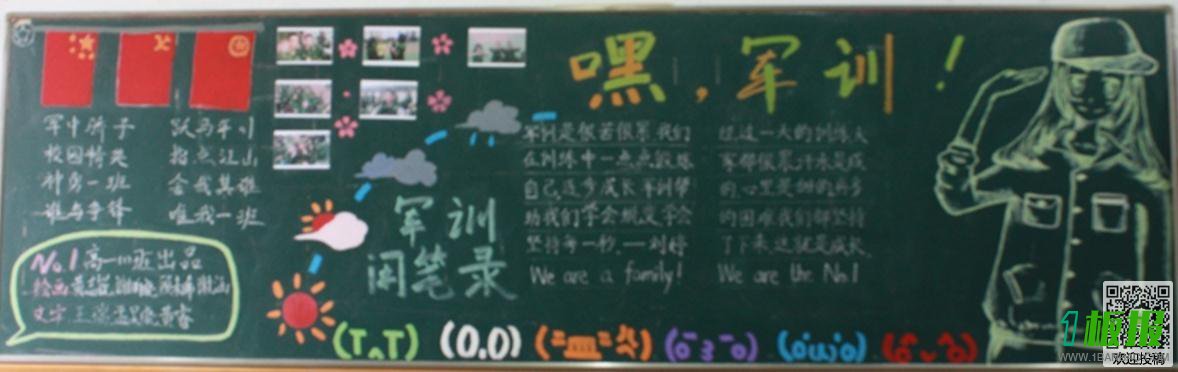 嘿，军训！
军中骄子 跃马平川
校园精英 指点江山
神勇一班 会我其雄
谁与争锋 唯我一班
No.1 高一(1)班出品
绘画
文字
军训
闲笔录
军训是很苦很累,我们
在训练中一点点锻炼
自己,逐步成长,军训帮
助我们学会规矩,学会
坚持每一秒.
We are a family!
经过一天的训练大
家都很累,汗水是咸
的,心里是甜的,再多
的困难我们都坚持
了下来,这就是成长.
We are the No.1
(T^T) (O.O)
1板报
WWW.1BANBAO.COM
欢迎投稿